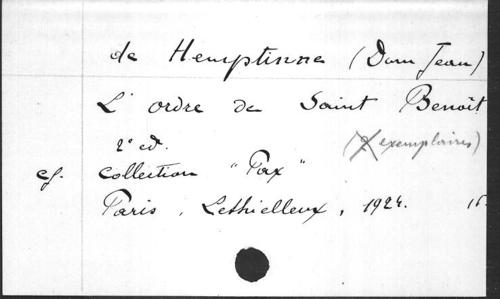 de Hemptinne (Dom Jean)
L'ordre de Saint Benoît
2e ed. (2 exemplaires)
cf. Collection "Pax"
Paris, Lethielleux, 1924. 16